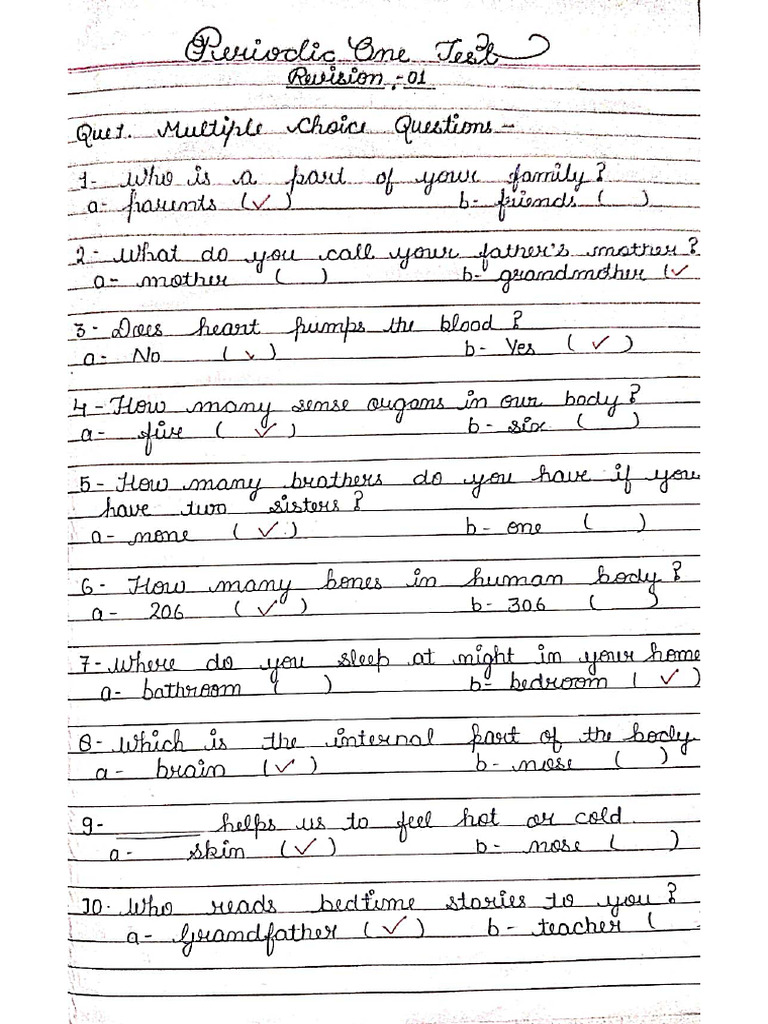 Periodic One Test
Revision-01
Que1. Multiple Choice Questions-
1- Who is a part of your family?
a- parents (✓) b- friends ( )
2- What do you call your father's mother?
a- mother ( ) b- grandmother (✓
3- Does heart pumps the blood?
a- No (✓) b- Yes (✓)
4- How many sense organs in our body?
a- five (✓) b- six ( )
5- How many brothers do you have if you
have two sisters?
a- none (✓) b- one ( )
6- How many bones in human body?
a- 206 (✓) b- 306 ( )
7- Where do you sleep at night in your home
a- bathroom ( ) b- bedroom (✓)
8- Which is the internal part of the body
a- brain (✓) b- nose ( )
9- ________ helps us to feel hot or cold.
a- skin (✓) b- nose ( )
10- Who reads bedtime stories to you?
a- Grandfather (✓) b- teacher (